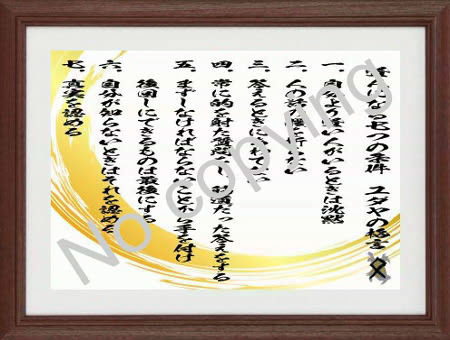 賢人になる七つの条件 ユダヤの格言
一、自分より賢い人がいるときは沈黙
二、人の話の腰を折らない
三、答えるときにあわてない
四、常に的を射た質問をし、筋道だった答えをする
五、まずしなければならないことから手を付け
後回しにできるものは最後にする
六、自分が知らないときはそれを認める
七、真実を認める
No copying